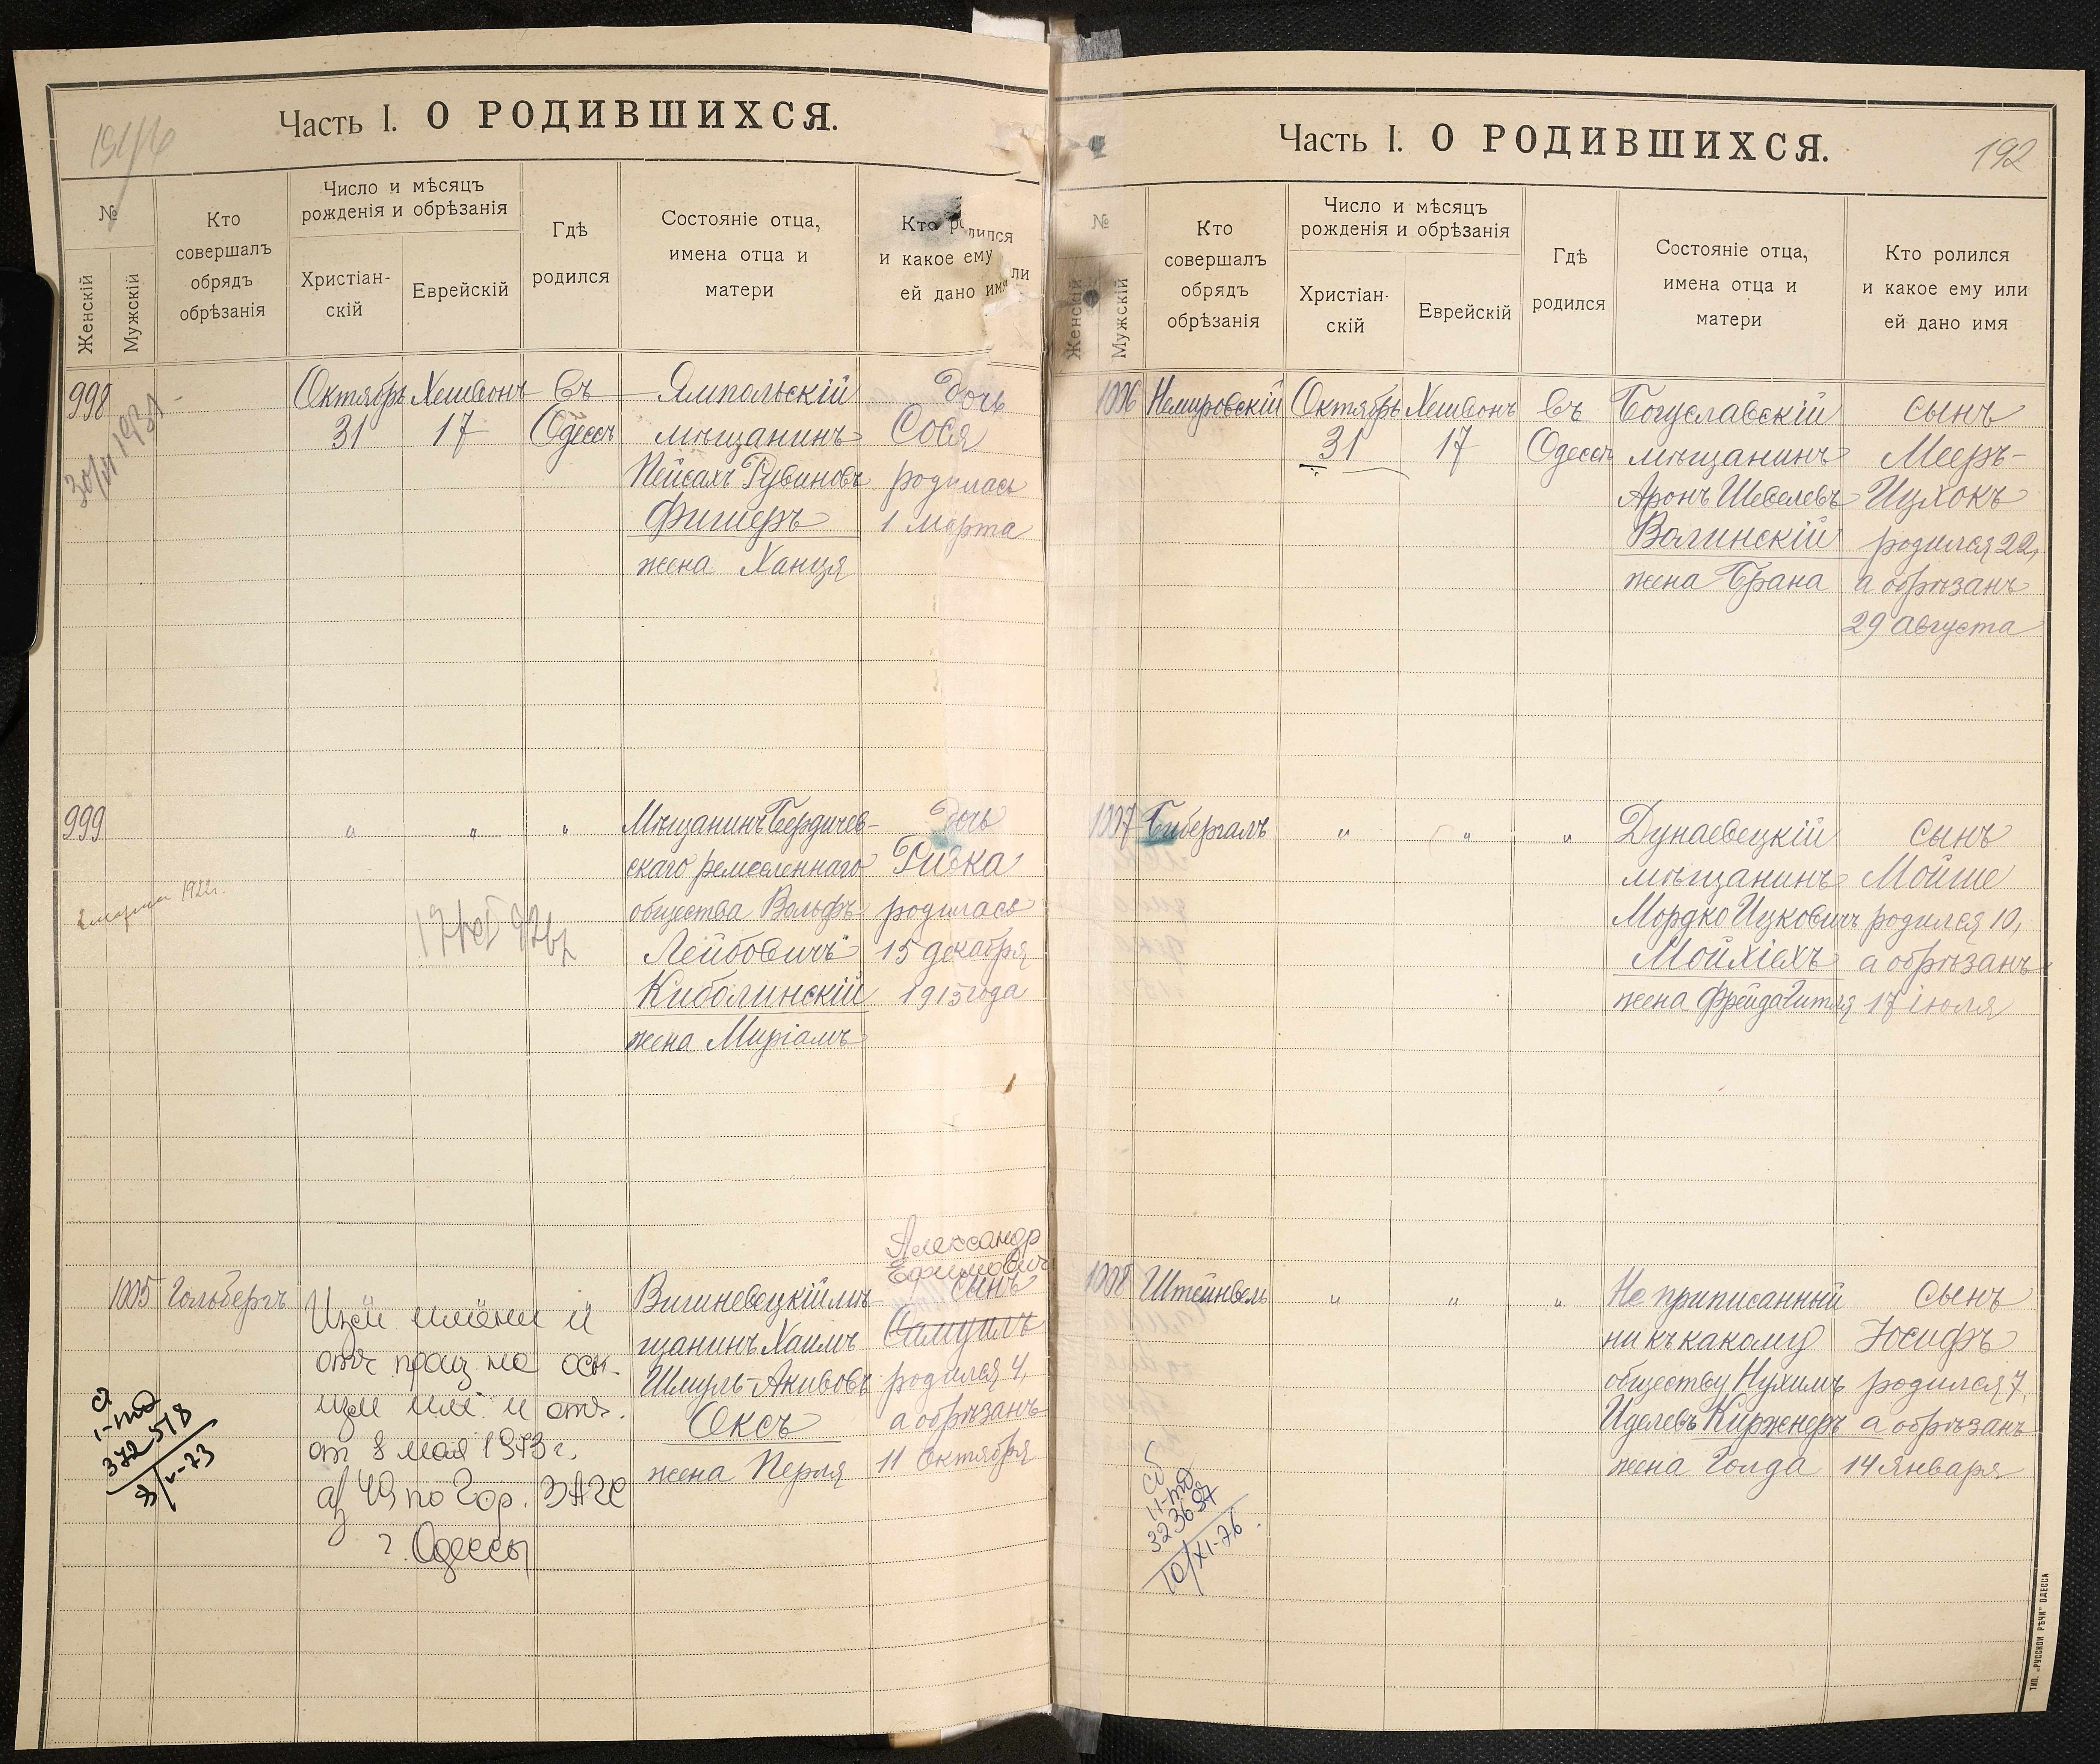 Часть I. О РОДИВШИХСЯ.
№
Женскій
Мужскій
Кто
совершалъ
обрядъ
обрѣзанія
Число и мѣсяцъ
рожденія и обрѣзанія
Христіан-
скій
Еврейскій
Гдѣ
родился
Состояніе отца,
имена отца и
матери
Кто родился
и какое ему или
ей дано имя
998
30/VI 1931
Октябрь
31
Хешвонъ
17
въ
Одессѣ
Ямпольскій
мѣщанинъ
Пейсахъ Рувиновъ
Фишеръ
жена Ханця
Дочь
Сося
родилась
1 марта
999
марта 1922г.
"
"
"
Мѣщанинъ Бердичев-
скаго ремесленнаго
общества Вольфъ
Лейбовичъ
Киболинскій
жена Миріамъ
Дочь
Ривка
родилась
15 декабря
1915 года
1005
Гольбергъ
Изм имени и
отч прощ на осн.
изм им. и отч.
от 8 мая 1973 г.
а/з 49 по Гор. ЗАГС
г. Одессы
I-ЖД
372518
8/V-73
Вишневецкій мѣ-
щанинъ Хаимъ
Шмуль-Акивовъ
Оксъ
жена Перля
Александр
Ефимович
сынъ
Самуилъ
родился 4,
а обрѣзанъ
11 Октября
Часть I. О РОДИВШИХСЯ.
192
№
Женскій
Мужскій
Кто
совершалъ
обрядъ
обрѣзанія
Число и мѣсяцъ
рожденія и обрѣзанія
Христіан-
скій
Еврейскій
Гдѣ
родился
Состояніе отца,
имена отца и
матери
Кто ролился
и какое ему или
ей дано имя
1006
Немировскій
Октябрь
31
Хешвонъ
17
въ
Одессѣ
Богуславскій
мѣщанинъ
Аронъ Шевелевъ
Волинскій
жена Брана
сынъ
Мееръ-
Ицхокъ
родился 22,
а обрѣзанъ
29 Августа
1007
Бибергалъ
"
"
"
Дунаевецкій
мѣщанинъ
Мордко Ицковичъ
Мойхіехъ
жена Фрейда Гитля
сынъ
Мойше
родился 10,
а обрѣзанъ
17 іюля
1008
Штейнвель
"
"
"
Не приписанный
ни къ какому
обществу Нухимъ
Иделевъ Киржнеръ
жена Голда
сынъ
Іосифъ
родился 7,
а обрѣзанъ
14 Января
II-ЖД
323697
10/XI-76.
ТИП. „РУССКОЙ РѢЧИ" ОДЕССА